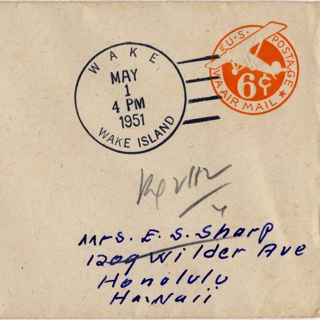 WAKE
MAY
1
4 PM
1951
WAKE ISLAND
U.S. POSTAGE
6¢
VIA AIR MAIL
Mrs. E. S. Sharp
1209 Wilder Ave
Honolulu
Hawaii